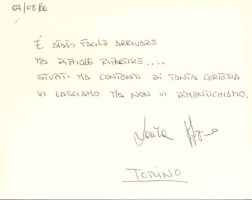 07/08/86
È STATO FACILE ARRIVARE
MA DIFFICILE RIPARTIRE....
STUPITI MA CONTENTI DI TANTA CORTESIA
VI LASCIAMO MA NON VI DIMENTICHIAMO.
TORINO